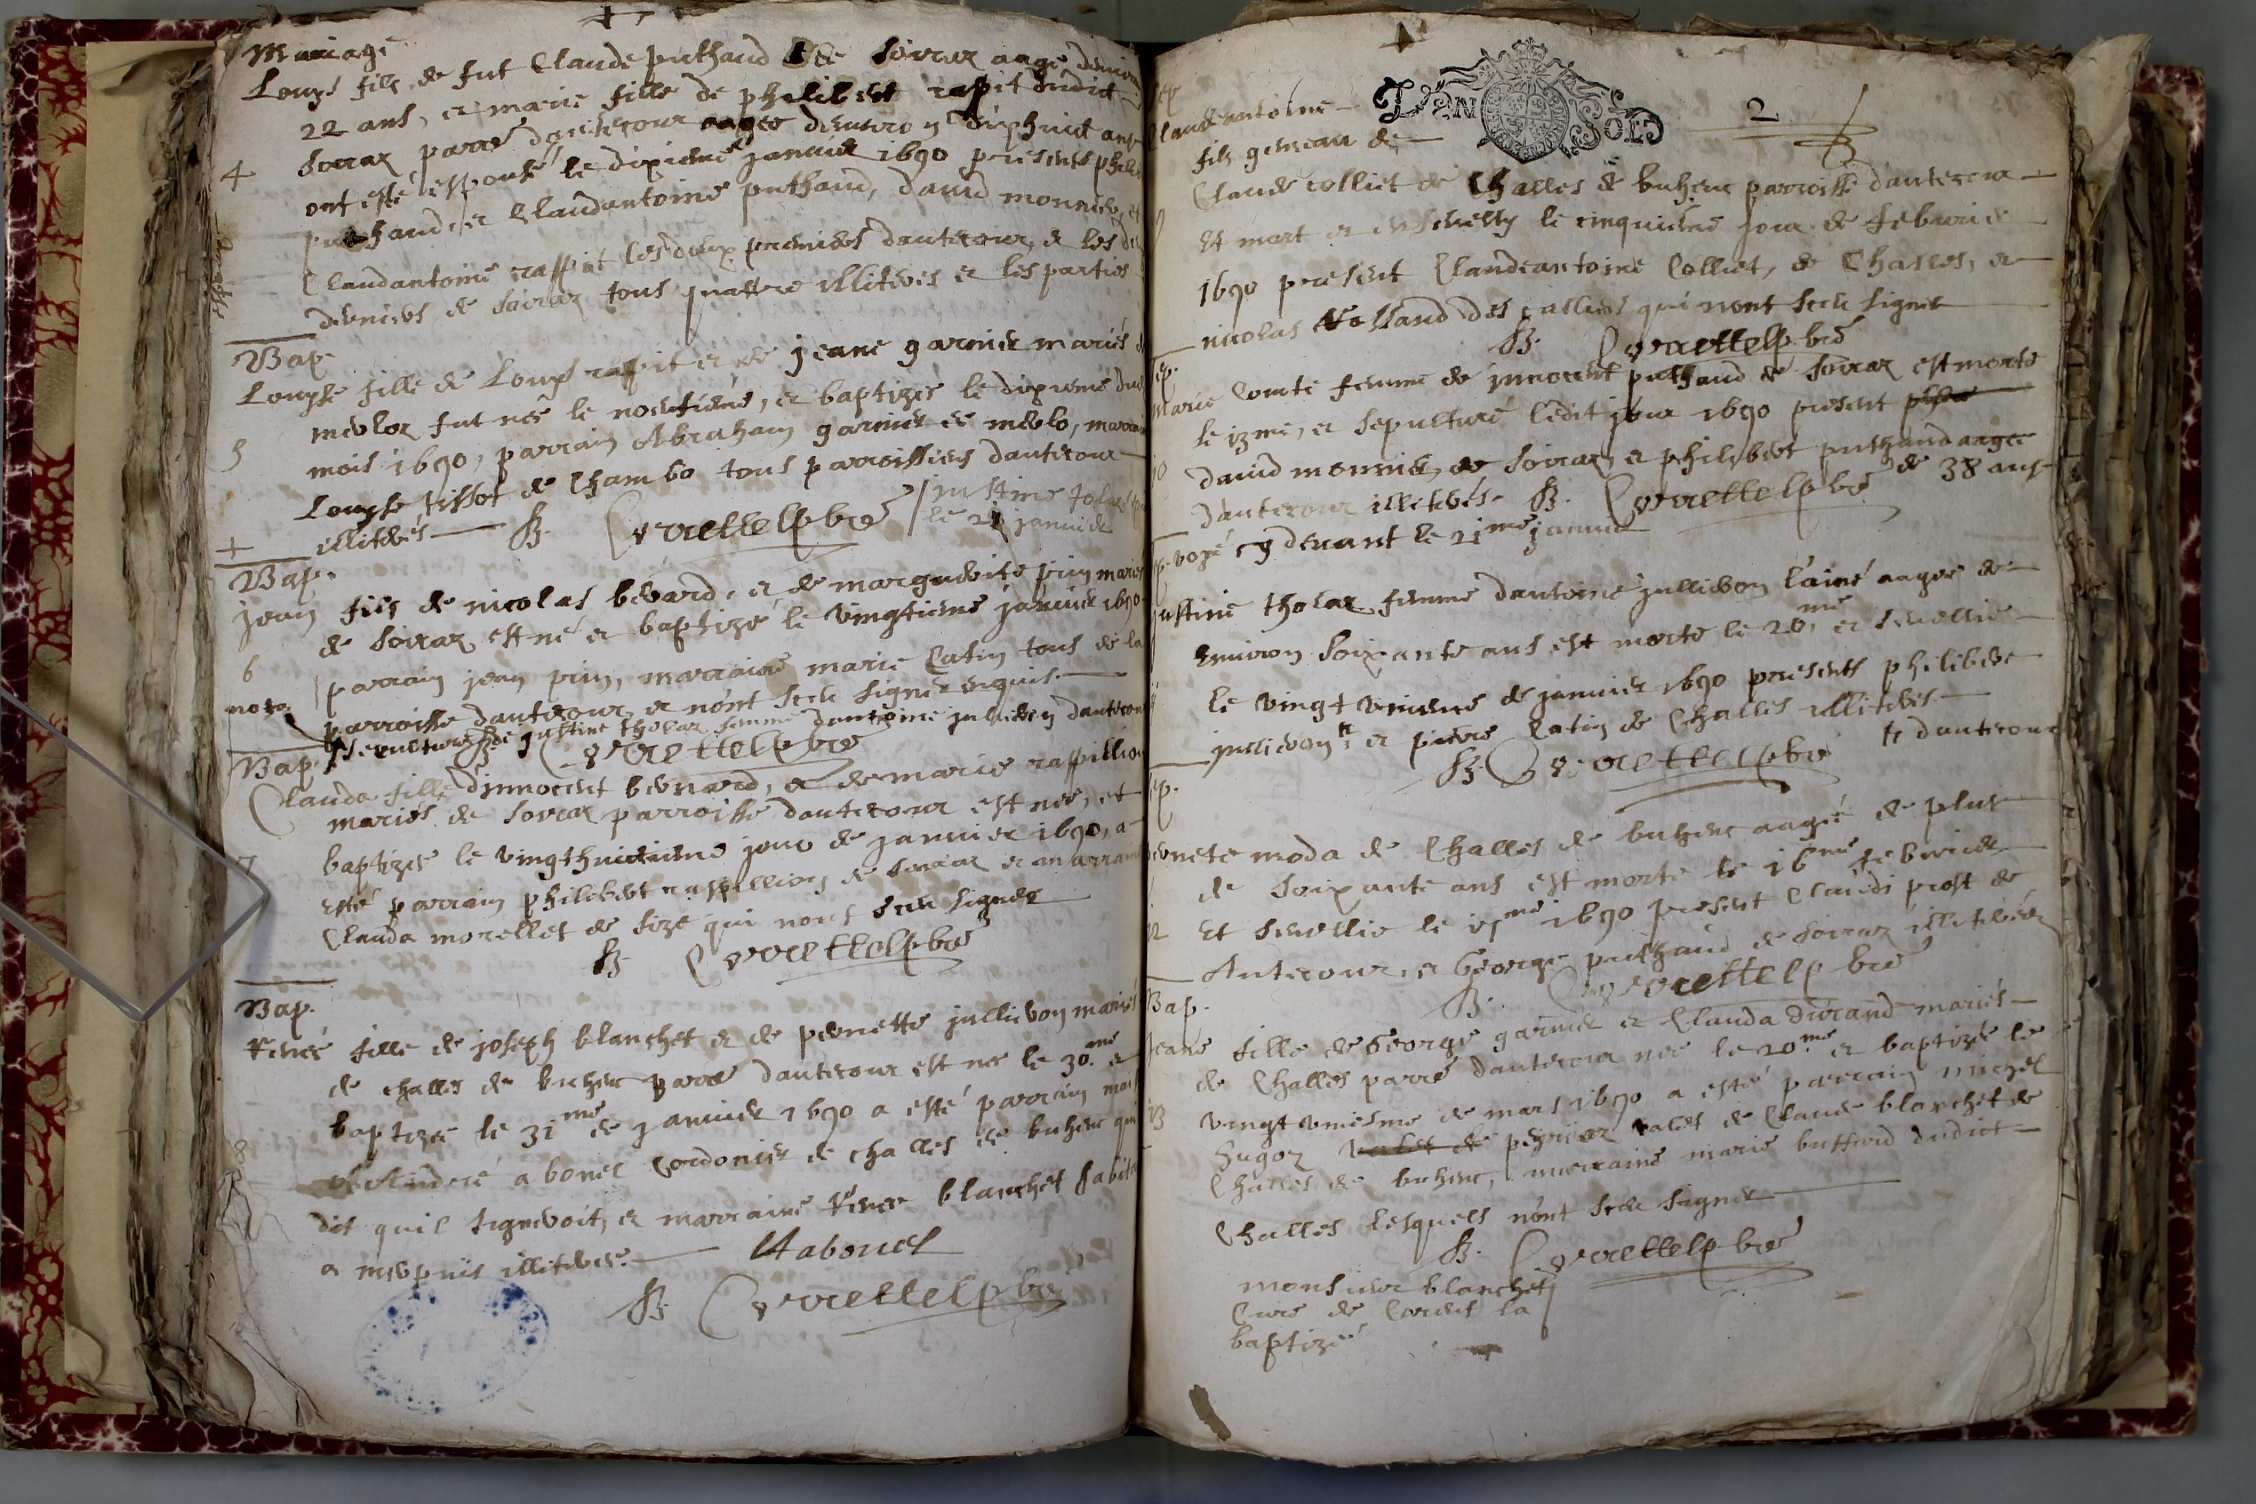 Mariage
Louys fils de fut Claude puthaud de Sorrar aagé denviron
22 ans, et marie fille de philibert rapit dudict
Sorrar parre dautecour aagee denviron dixhuict ans
4
ont esté espousé le dixieme janvier 1690 presents philib
puthaud, et Claudantoine puthaud, david monnier, et
Claudantoine raspit les deux premiers dautecour, et les de
derniers de Sorrar tous quattre illiteres et les parties
Bap.
Louyse fille de Louys rapit et de jeane garnier mariés d
merlor fut née le noeufieme, et baptizée le dixieme du
5
mois 1690, parrain Abraham garnier de merlo, marrai
Louyse tissot de Chambo tous parroissiens dautecour
illiterés
justine tolar
le 21 janvier
+
Bap.
jean fils de nicolas berard, et de marguerite prin marié
de Sorrar est né et baptizé le vingtieme janvier 1690
6
parrain jean prin, marraine marie Catin tous de la
nota
parroisse dautecour et nont sceu signer enquis.
Sepulture de justine tholar femme dantoine julieron dautecour
Bap.
Clauda fille dinnocent bernard, et de marie raspillion
mariés de Sorrar parroisse dautecour est née, et
7
baptizée le vingthuictieme jour de janvier 1690, a
esté parrain philibert raspillion de Sorrar et marraine
Clauda morellet de size qui nont sceu signer
Bap.
Renée fille de joseph blanchet et de pernette jullieron mariés
de challes de buhenc parre dautecour est née le 30.me et
baptizée le 31me de janvier 1690 a esté parrain mai
8
André abonel Cordonier de challes de buhenc qui
dit quil signeroit, et marraine Renee blanchet habita
a merpuis illiteree.
Aabonel
VAN SOLS
2
Sep
Claudeantoine
fils gemeau de
Claude Colliet de Challes de buhenc parroisse dautecour
Et mort et ensevelly le cinquieme jour de febvrier
1690 present Claudeantoine Colliet, de Challes, et
nicolas Rolland des Calliers qui nont sceu signer
Sep.
Marie Comte femme de innocent puthaud de Sorrar est morte
le 13me, et sepulturé ledit jour 1690 present
10
david monnier, de Sorrar, et philibert puthaud aagee
dautecour illiterés. de 38 ans
voyé cy devant le 21me janvier
justine tholar femme dantoine jullieron lainé aagee de
environ soixante ans est morte le 20me, et sevellie
le vingt unieme de janvier 1690 presents philibert
jullieron, et pierre Catin de Challes illiteres
dautecour
Sep.
pernete moda de Challes de buhenc aagée de plus
de soixante ans est morte le 16me febvrier
12
Et sevellie le 17me 1690 present Claude prost de
Autecour, et George puthaud de Sorrar illiterés
Bap.
Jeane fille de George garnier et Clauda durand mariés
de Challes parre dautecour née le 20.me et baptizée le
13
vingt uniesme de mars 1690 a esté parrain michel
hugon valet de peyriar valet de Claude blanchet de
Challes de buhenc, marraine marie buffard dudict
Challes lesquels nont sceu signer
monsieur blanchet
Cure de Corveis la
baptizée